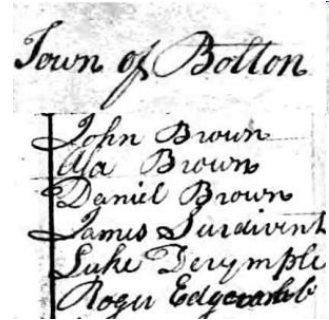 Town of Bolton
John Brown
Asa Brown
Daniel Brown
James Surdivent
Luke Derymple
Roger Edgecomb